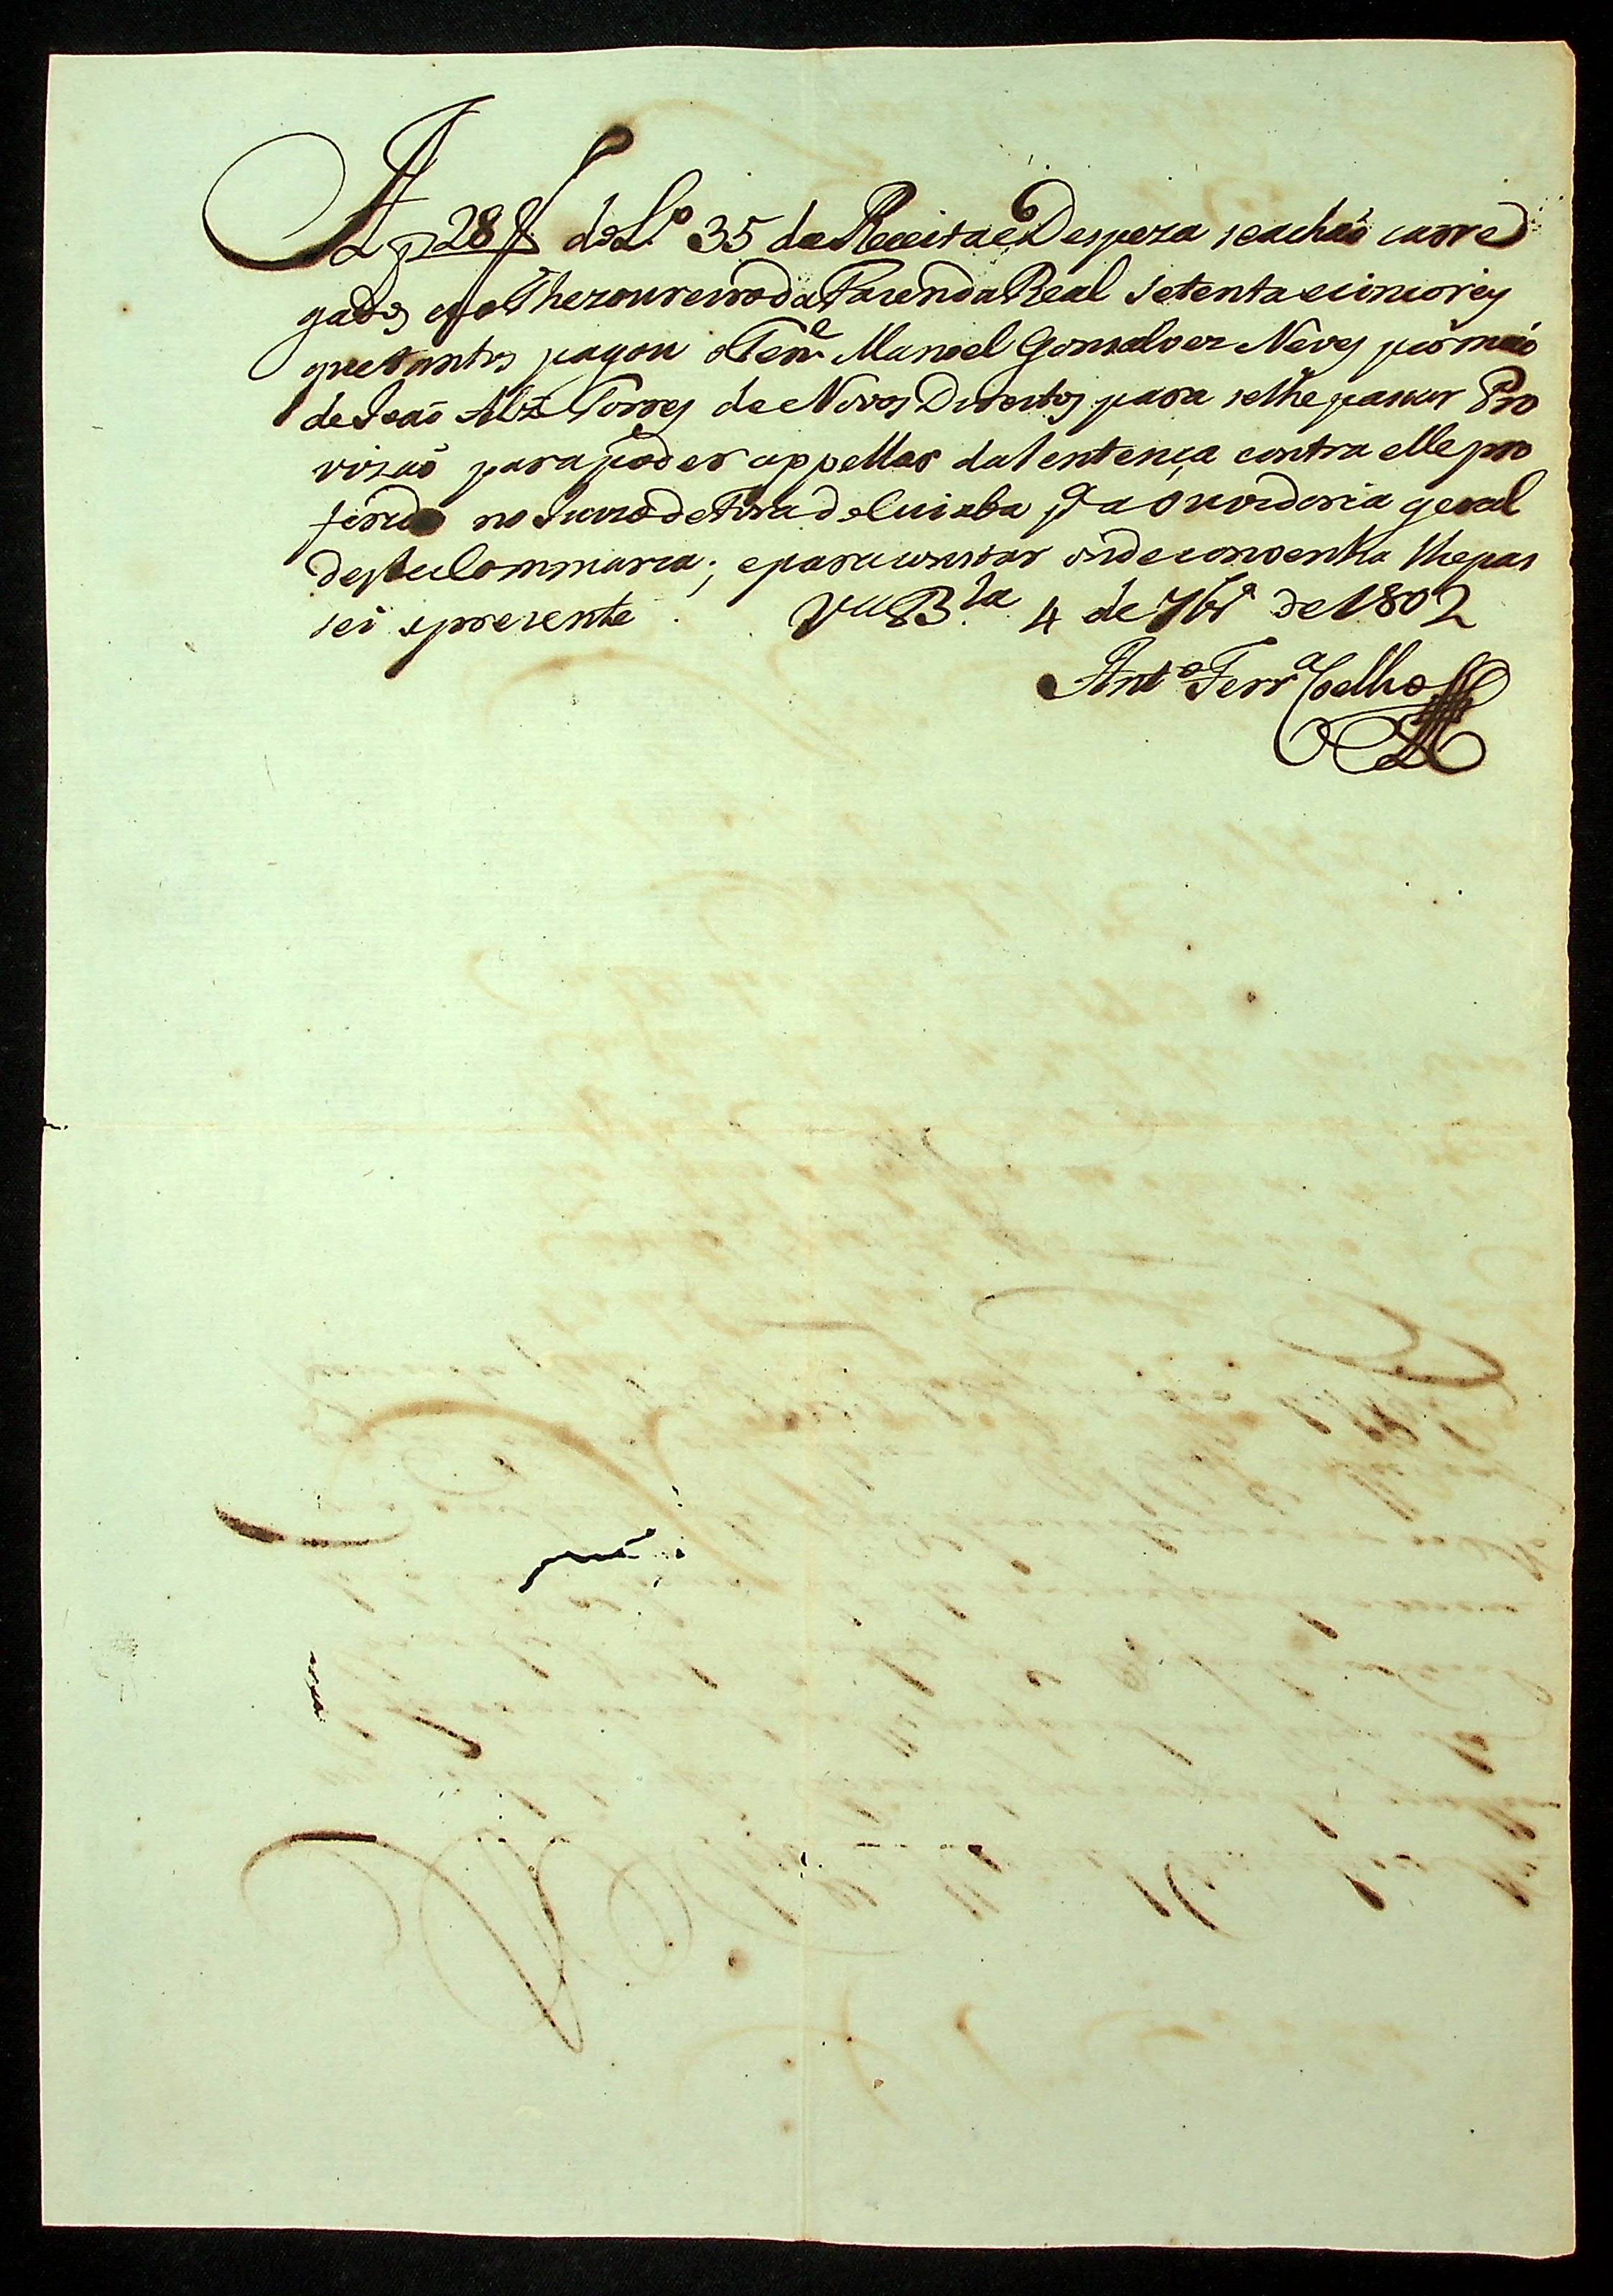 A f 28 V do L.º 35 da Receita e Despeza se achaõ carre
gados ao Thezoureiro da Fazenda Real setenta e cinco reis
que tantos pagou o Ten.e Manoel Gonsalvez Neves por maõ
de Joaõ Alz Torres de Novos Direitos para se lhe passar Pro
vizaõ para poder appellar da Sentença contra elle pro
ferida no Juizo de Fora do Cuiaba p.ª a Ouvidoria geral
desta Commarca; e para constar onde convenha lhe pas
sei o prezente. V.ª B.la 4 de 7br.º de 1802
Ant.º Ferr.ª Coelho